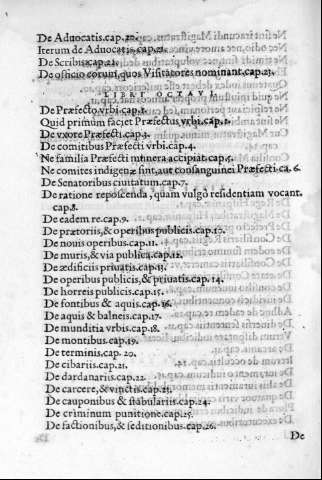 De Aduocatis.cap.20.
Iterum de Aduocatis.cap.21.
De Scribis.cap.22.
De officio eorum, quos Visitatores nominant.cap.23.
LIBRI OCTAVI.
De Præfecto vrbi.cap.1.
Quid primum faciet Præfectus vrbi.cap.2.
De vxore Præfecti.cap.3.
De comitibus Præfecti vrbi.cap.4.
Ne familia Præfecti munera accipiat.cap.5.
Ne comites indigenæ sint, aut consanguinei Præfecti.ca.6.
De Senatoribus ciuitatum.cap.7.
De ratione reposcenda, quam vulgò residentiam vocant.
cap.8.
De eadem re.cap.9.
De prætoriis, & operibus publicis.cap.10.
De nouis operibus.cap.11.
De muris, & via publica.cap.12.
De ædificiis priuatis.cap.13.
De operibus publicis, & priuatis.cap.14.
De horreis publicis.cap.15.
De fontibus & aquis.cap.16.
De aquis & balneis.cap.17.
De munditia vrbis.cap.18.
De montibus.cap.19.
De terminis.cap.20.
De cibariis.cap.21.
De dardanariis.cap.22.
De carcere, & vinctis.cap.23.
De cauponibus & stabulariis.cap.24.
De criminum punitione.cap.25.
De factionibus, & seditionibus.cap.26.
De